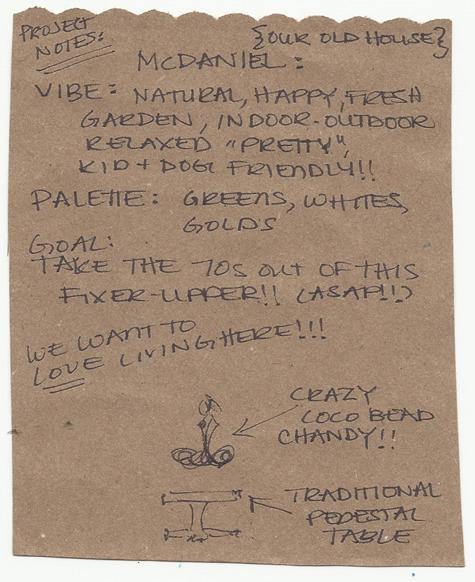 PROJECT
NOTES:
{OUR OLD HOUSE}
MCDANIEL:
VIBE: NATURAL, HAPPY, FRESH
GARDEN, INDOOR-OUTDOOR
RELAXED "PRETTY",
KID + DOG FRIENDLY!!
PALETTE: GREENS, WHITES,
GOLDS
GOAL:
TAKE THE 70S OUT OF THIS
FIXER-UPPER!! (ASAP!!)
WE WANT TO
LOVE LIVING HERE!!!
CRAZY
COCO BEAD
CHANDY!!
TRADITIONAL
PEDESTAL
TABLE